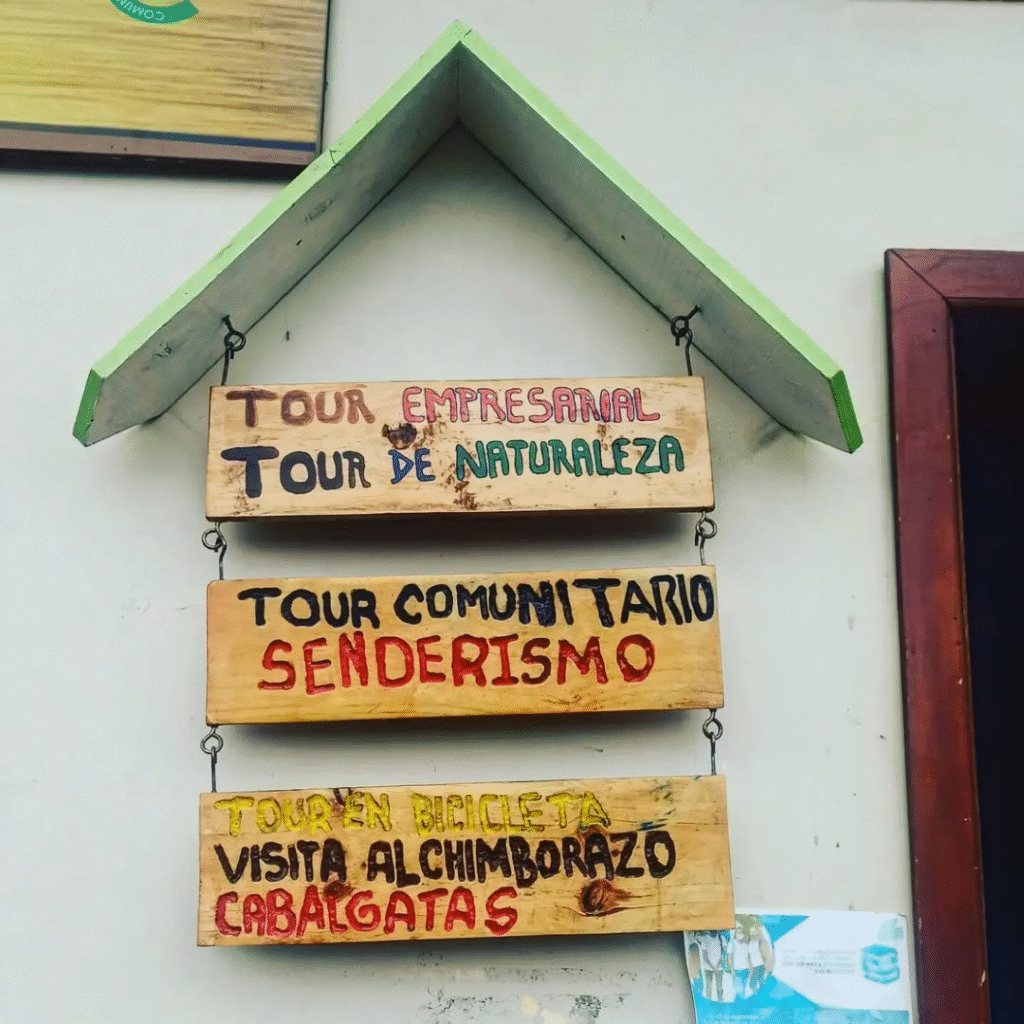 TOUR EMPRESARIAL
TOUR DE NATURALEZA
TOUR COMUNITARIO
SENDERISMO
TOUR EN BICICLETA
VISITA AL CHIMBORAZO
CABALGATAS